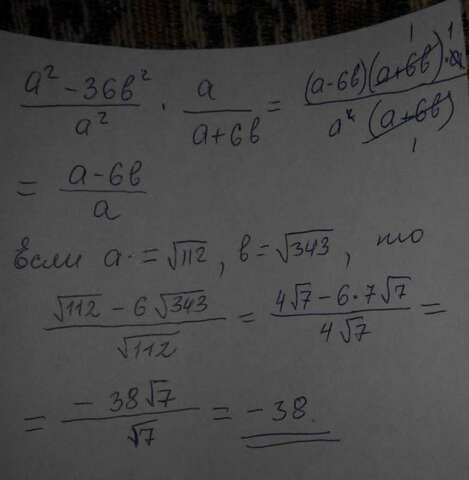 (a² - 36b²)/a² · a/(a+6b) = ((a-6b)(a+6b)·a)/(a²(a+6b))
= (a-6b)/a
Если a = √112, b = √343, то
(√112 - 6√343)/√112 = (4√7 - 6·7√7)/(4√7) =
= (-38√7)/√7 = -38.